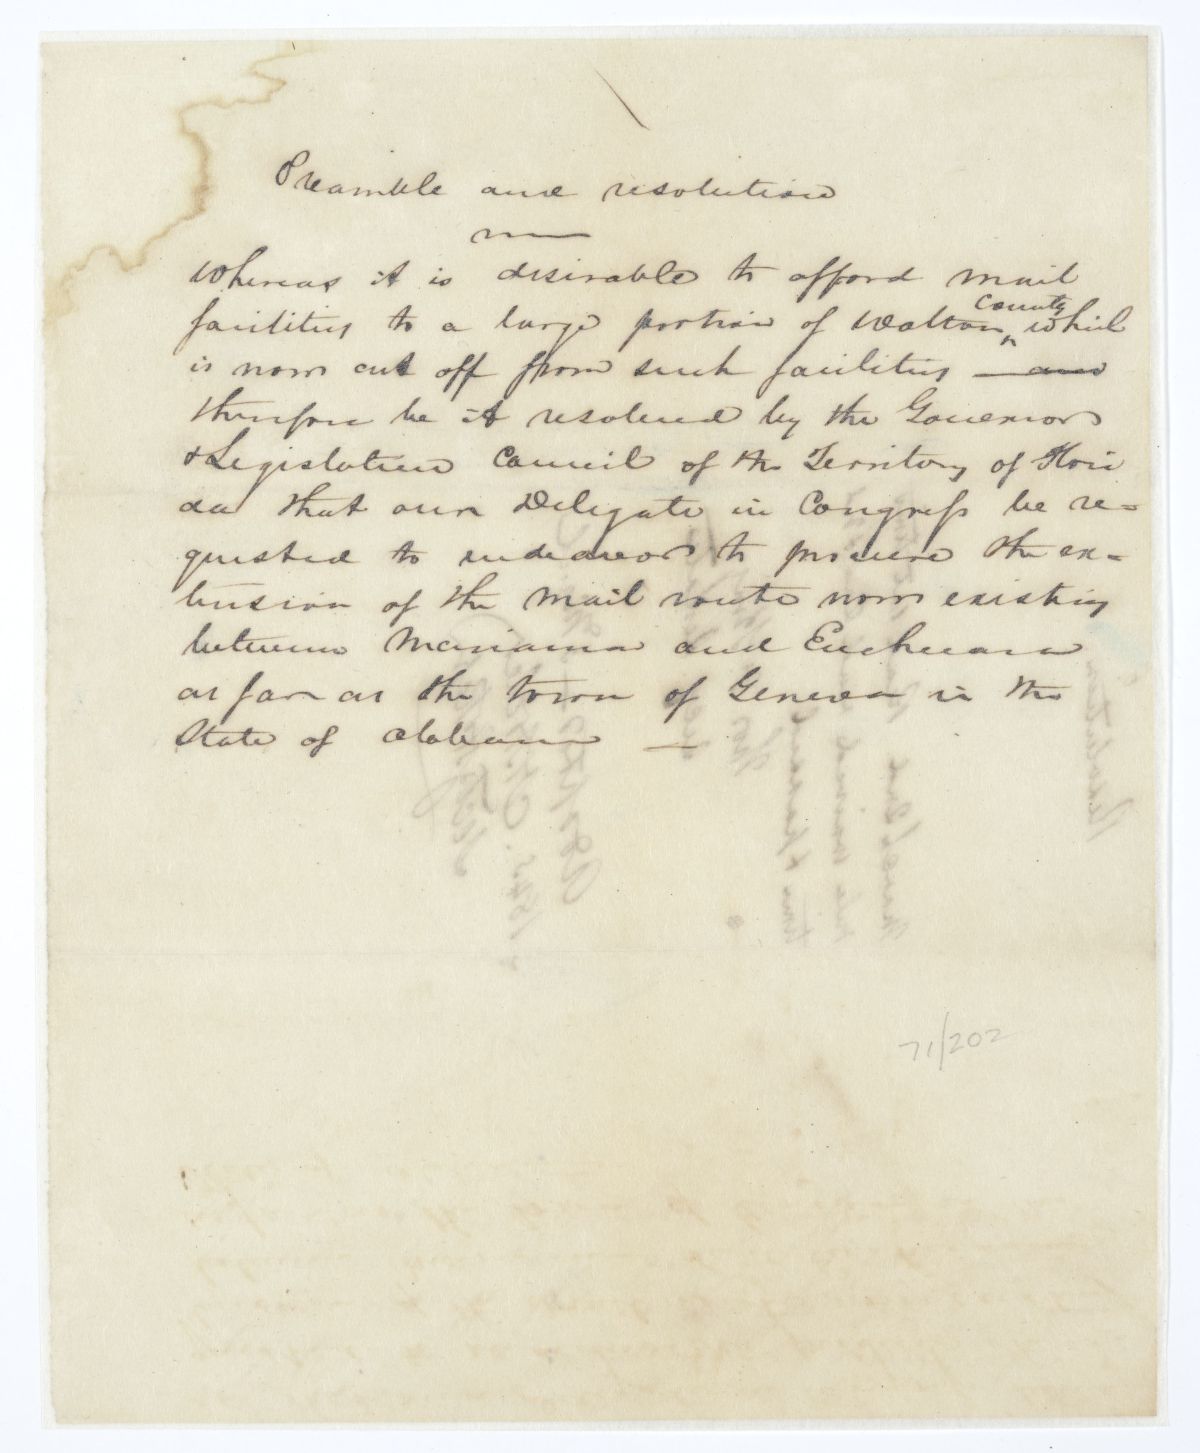 Preamble and resolution
Whereas it is desirable to afford mail
facilities to a large portion of Walton County which
is now cut off from such facilities and
therefore be it resolved by the Governor
& Legislative Council of the Territory of Flori
da that our Delegate in Congress be re=
quested to endeavor to procure the ex=
tension of the mail route now existing
between Marianna and Eucheeana
as far as the town of Geneva in the
State of Alabama
71/202